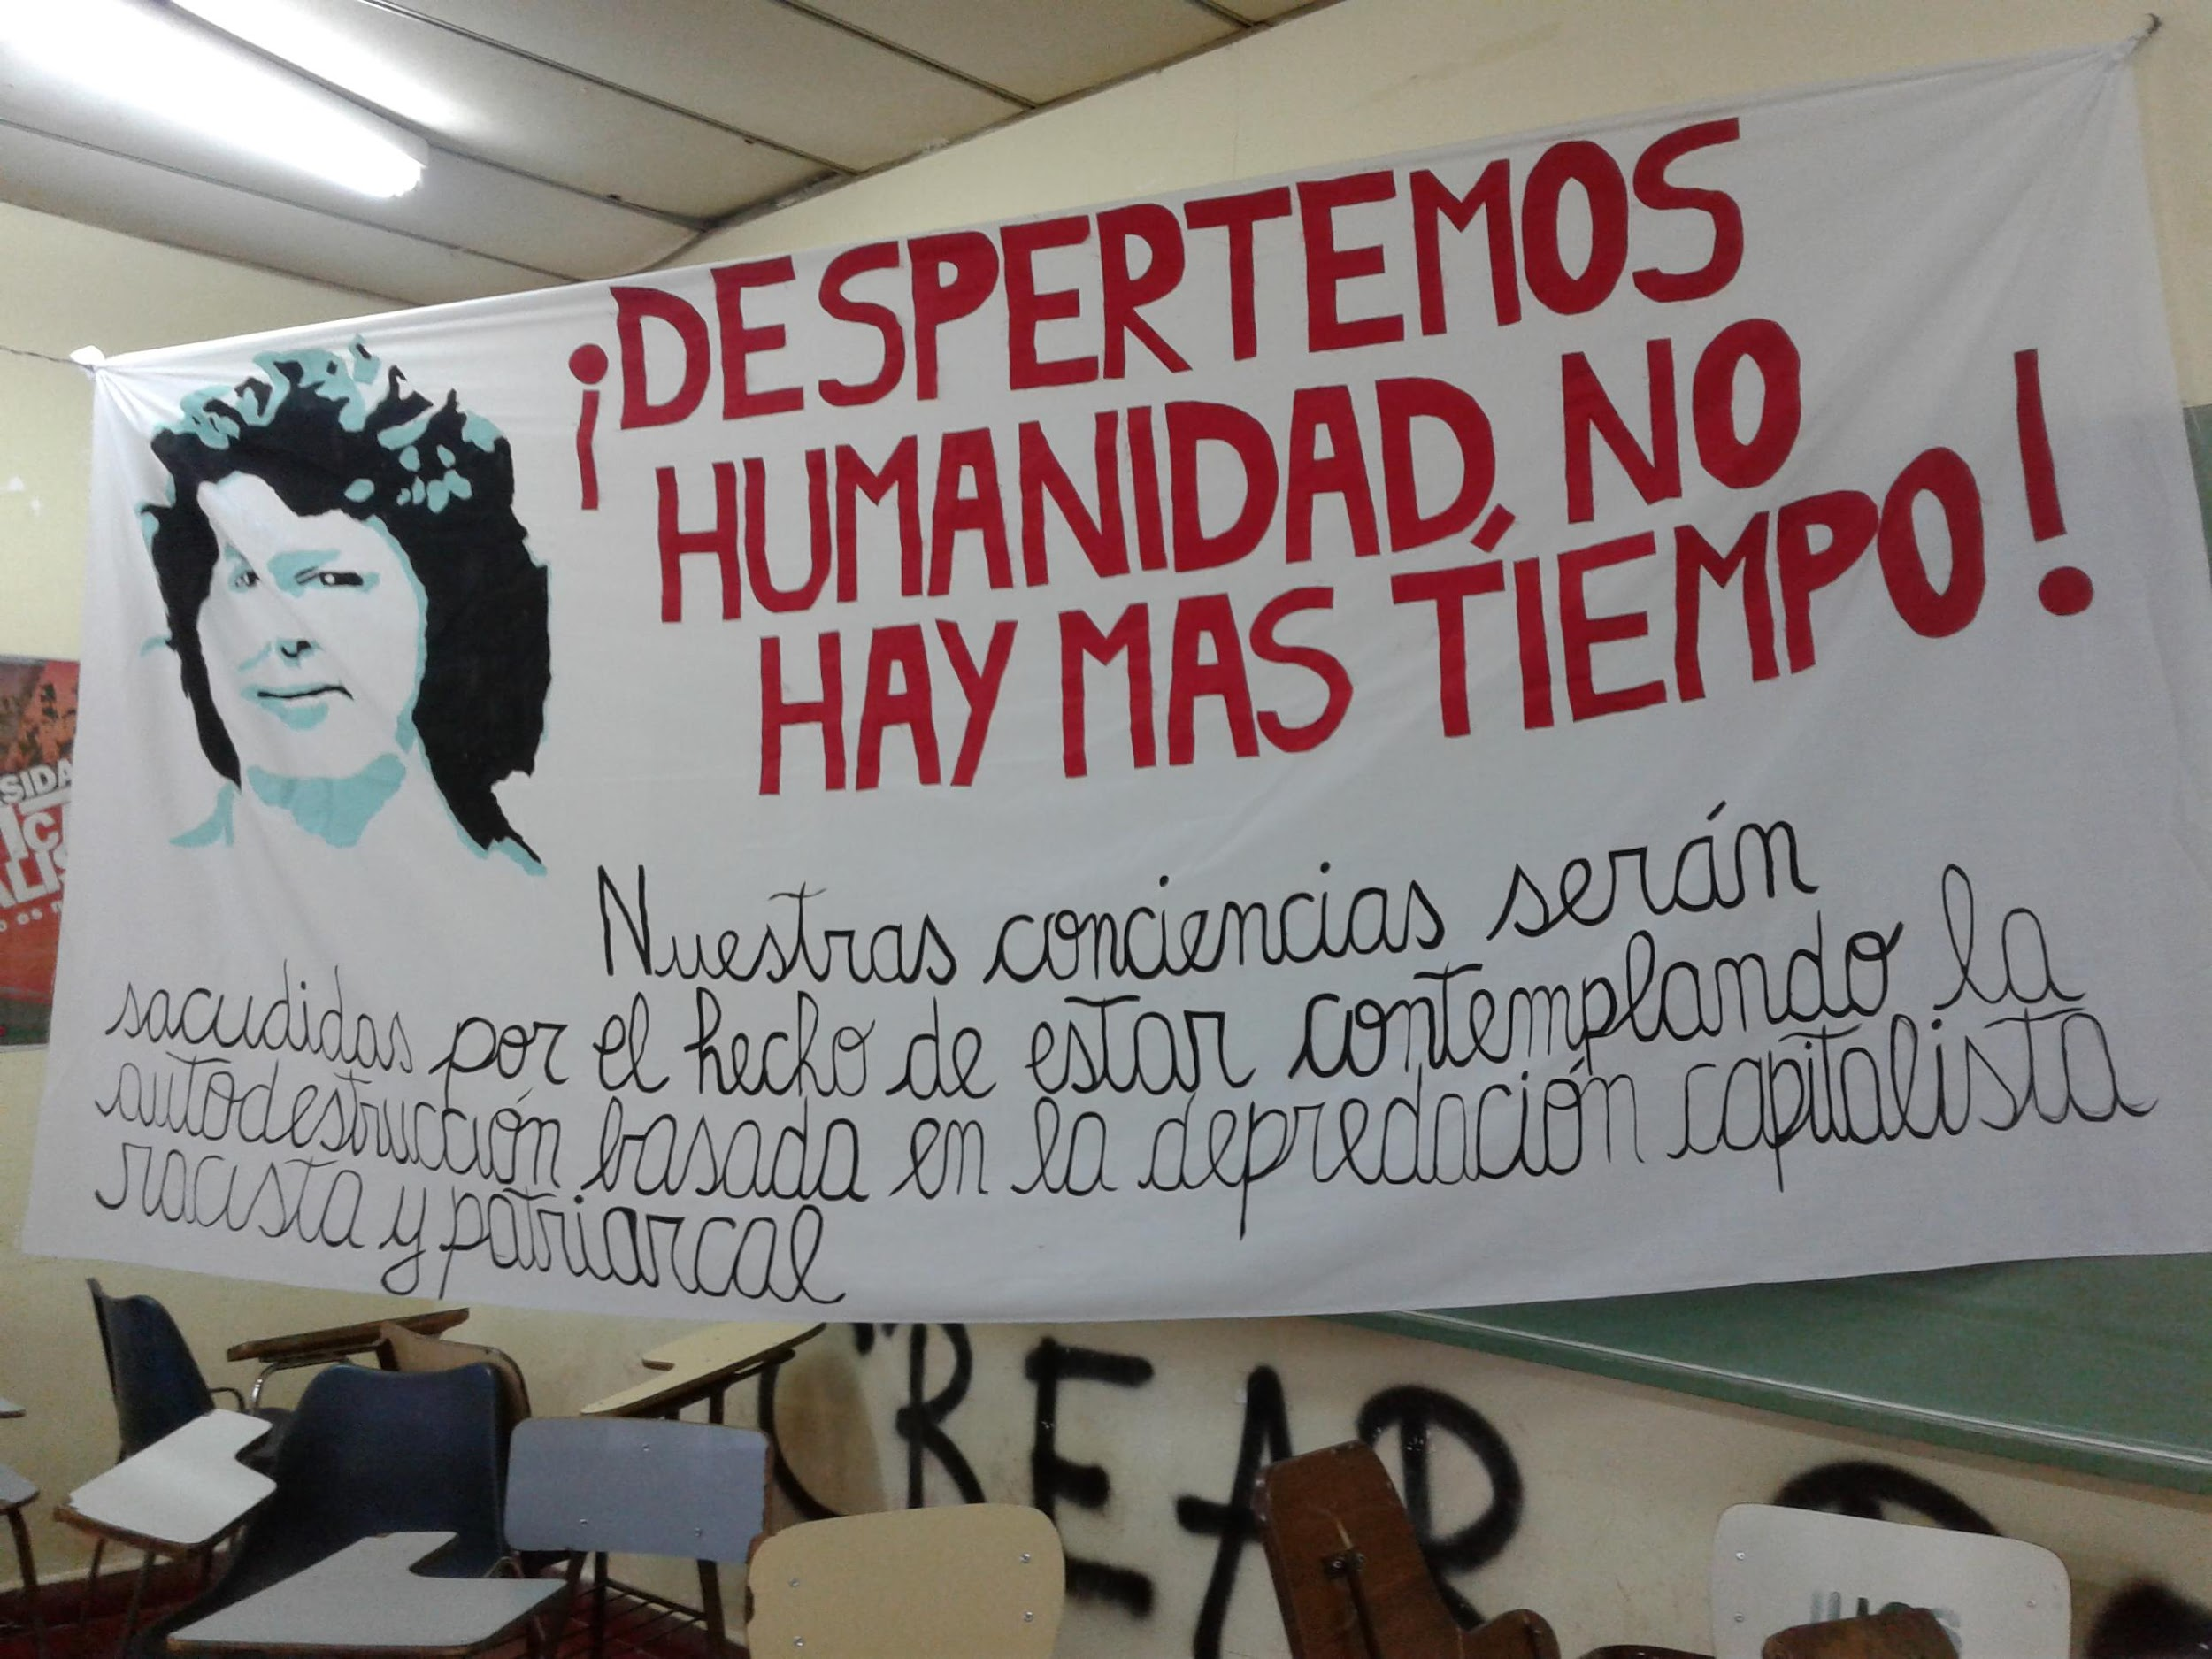 ¡DESPERTEMOS
HUMANIDAD, NO
HAY MAS TIEMPO!
Nuestras conciencias serán
sacudidas por el hecho de estar contemplando la
autodestrucción basada en la depredación capitalista
racista y patriarcal
CREAR